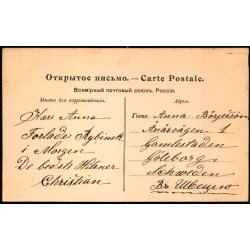 Открытое письмо. — Carte Postale.
Всемірный почтовый союзъ. Россія.
Мѣсто для корреспонденціи.
Kære Anna
Forlader Rybinsk
i Morgen
De bedste Hilsner
Christian
Адресъ.
Anna
1
Gamlestaden
Göteborg
Schweden
Въ Швецію